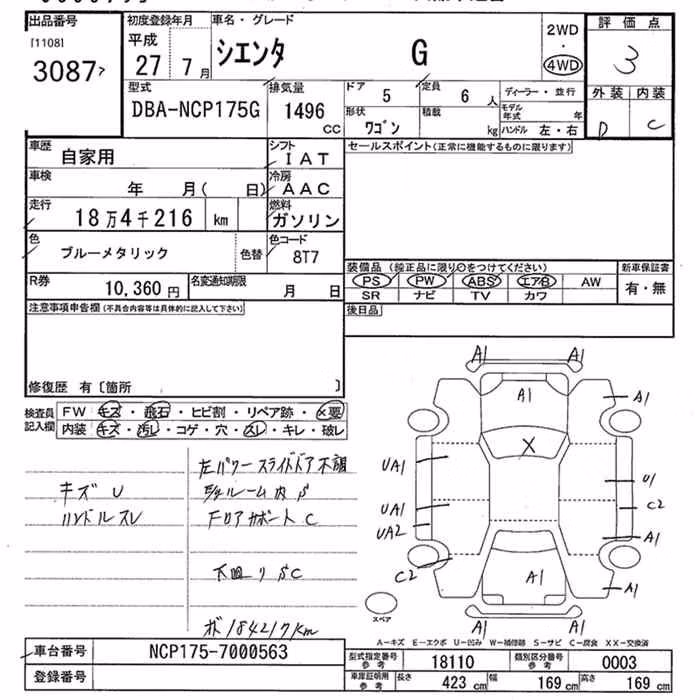 出品番号
[1108]
3087
初度登録年月
平成
27 7 月
車名・グレード
シエンタ G
2WD
・
4WD
評価点
3
外装 内装
D C
型式
DBA-NCP175G
排気量
1496
CC
ドア 5
定員 6 人
形状 ワゴン
積載 kg
ディーラー・並行
モデル年式 年
ハンドル 左・右
車歴 自家用
シフト IAT
車検 年 月( 日)
冷房 AAC
走行 18万4千216 km
燃料 ガソリン
色 ブルーメタリック 色替
色コード 8T7
R券 10,360 円
名変通知期限 月 日
セールスポイント(正常に機能するものに限ります)
装備品 (純正品に限り○をつけてください)
PS PW ABS エアB AW
SR ナビ TV カワ
新車保証書
有・無
後日品
注意事項申告欄 (不具合内容等は具体的に記入して下さい)
修復歴 有〔箇所 〕
検査員記入欄
FW キズ・飛石・ヒビ割・リペア跡・X要
内装 キズ・汚レ・コゲ・穴・スレ・キレ・破レ
キズ U
ハンドルスレ
左パワースライドドア不調
ルーム内 S
Fロアサポート C
下回り SC
ボ 184217km
A1 A1
A1
A1
X
UA1
U1
UA1
C2
UA2
A1
C2
A1
A1
A1 A1
スペア
A-キズ E-エクボ U-凹み W-補修跡 S-サビ C-腐食 XX-交換済
車台番号 NCP175-7000563
登録番号
型式指定番号 参考 18110
類別区分番号 参考 0003
車庫証明用 参考 長さ 423 cm 幅 169 cm 高さ 169 cm